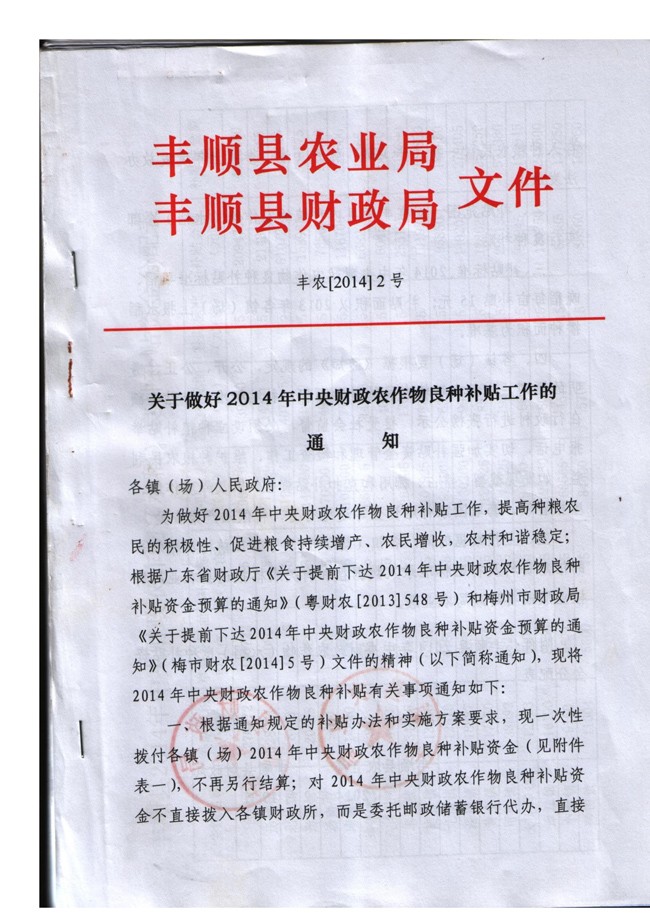 丰顺县农业局
丰顺县财政局
文件
丰农[2014]2号
关于做好2014年中央财政农作物良种补贴工作的
通 知
各镇（场）人民政府：
为做好2014年中央财政农作物良种补贴工作，提高种粮农
民的积极性、促进粮食持续增产、农民增收，农村和谐稳定；
根据广东省财政厅《关于提前下达2014年中央财政农作物良种
补贴资金预算的通知》（粤财农[2013]548号）和梅州市财政局
《关于提前下达2014年中央财政农作物良种补贴资金预算的通
知》（梅市财农[2014]5号）文件的精神（以下简称通知），现将
2014年中央财政农作物良种补贴有关事项通知如下：
一、根据通知规定的补贴办法和实施方案要求，现一次性
拨付各镇（场）2014年中央财政农作物良种补贴资金（见附件
表一），不再另行结算；对2014年中央财政农作物良种补贴资
金不直接拨入各镇财政所，而是委托邮政储蓄银行代办，直接